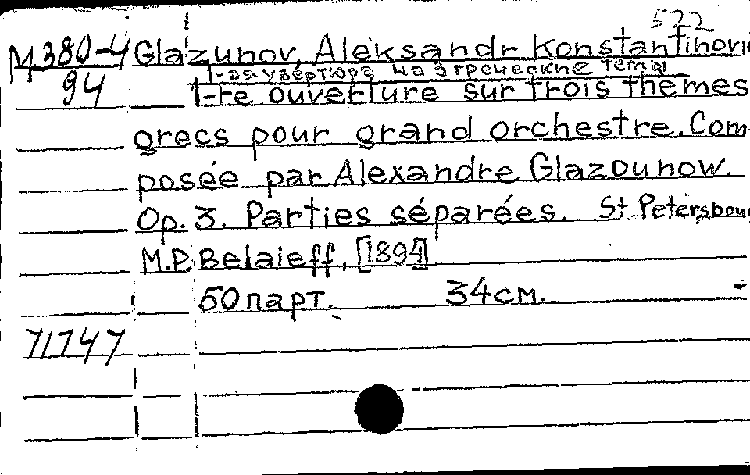 522
M380-4 Glazunov, Aleksandr Konstantinovič
1-ая увертюра на 3 греческие темы
94 1-re ouverture sur trois themes
grecs pour grand orchestre. Com
posée par Alexandre Glazounow.
Op. 3. Parties séparées. St Petersbou
M.P. Belaieff, [1894]
50 парт. 34 см.
71747